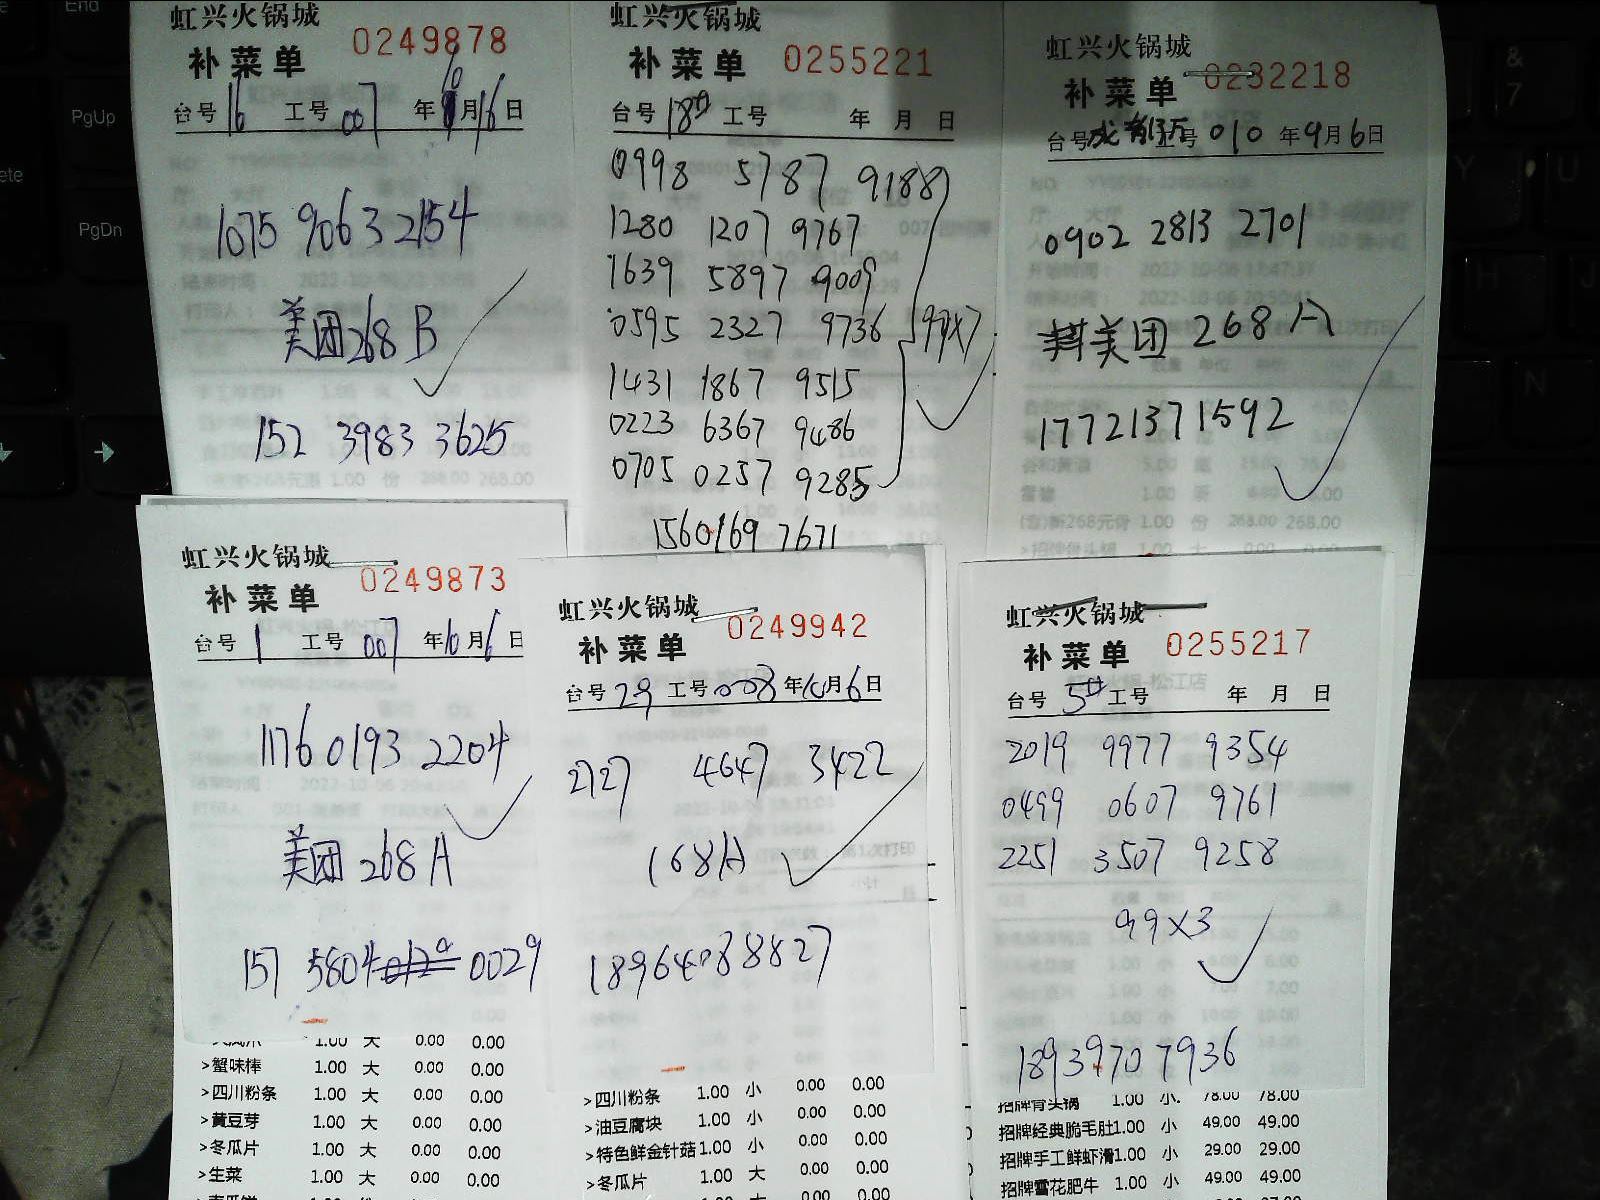 虹兴火锅城
补菜单 0249878
台号 16 工号 007 年 10 月 16 日
1075 9063 2154
美团268 B
152 3983 3625
虹兴火锅城
补菜单 0255221
台号 18 工号 年 月 日
0998 5787 9188
1280 1207 9767
1639 5897 9009
0595 2327 9736
99x7
1431 1867 9515
0223 6367 9486
0705 0257 9285
1560169 7671
虹兴火锅城
补菜单 0232218
台号 工号 010 年 9 月 6 日
0902 2813 2701
美团 268 A
17721371592
虹兴火锅城
补菜单 0249873
台号 1 工号 007 年 10 月 6 日
1176 0193 2204
美团 268 A
157 5804 0029
虹兴火锅城
补菜单 0249942
台号 29 工号 008 年 10 月 6 日
2727 4647 3422
168A
18964088827
虹兴火锅城
补菜单 0255217
台号 5 工号 年 月 日
2019 9977 9354
0499 0607 9761
2251 3507 9258
99x3
1893970 7936
1.00 大 0.00 0.00
>蟹味棒 1.00 大 0.00 0.00
>四川粉条 1.00 大 0.00 0.00
>黄豆芽 1.00 大 0.00 0.00
>冬瓜片 1.00 大 0.00 0.00
>生菜 1.00 大 0.00 0.00
>四川粉条 1.00 小 0.00 0.00
>油豆腐块 1.00 小 0.00 0.00
>特色鲜金针菇 1.00 小 0.00 0.00
>冬瓜片 1.00 大 0.00 0.00
招牌骨头锅 1.00 小. 78.00 78.00
招牌经典脆毛肚 1.00 小 49.00 49.00
招牌手工鲜虾滑 1.00 小 29.00 29.00
招牌雪花肥牛 1.00 小 49.00 49.00
PgUp
PgDn
End
&
7
Y
U
H
J
N